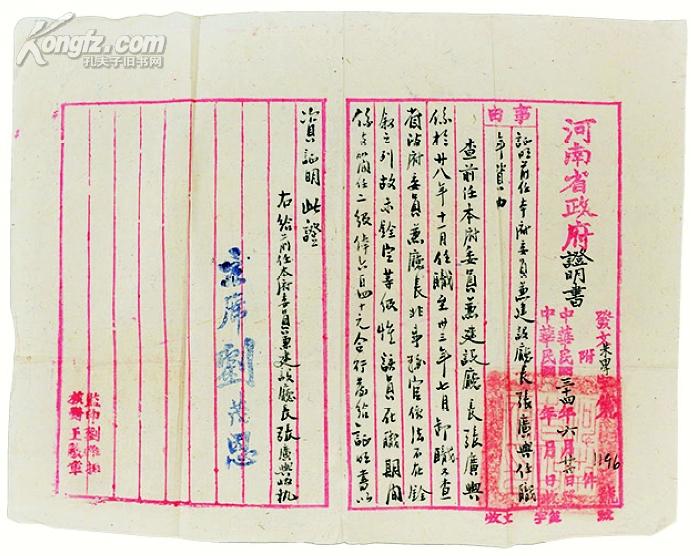 Kongfz.com
孔夫子旧书网
河南省政府證明書
發文 字第 1196 號
附 件
中華民國三十四年六月廿 日
中華民國 年 月 日
事由
証明前任本府委員兼建設廳長張廣輿任職
年資由
查前任本府委員兼建設廳長張廣輿
係於廿八年十一月任職至卅三年七月卸職又查
省政府委員兼廳長非事務官依法不在銓
敘之列故未銓定等級惟該員在職期間
係支簡任二級俸六百四十元合行發給証明書以
資証明此證
右給前任本府委員兼建設廳長張廣輿收執
主席劉茂恩
監印劉
校對王